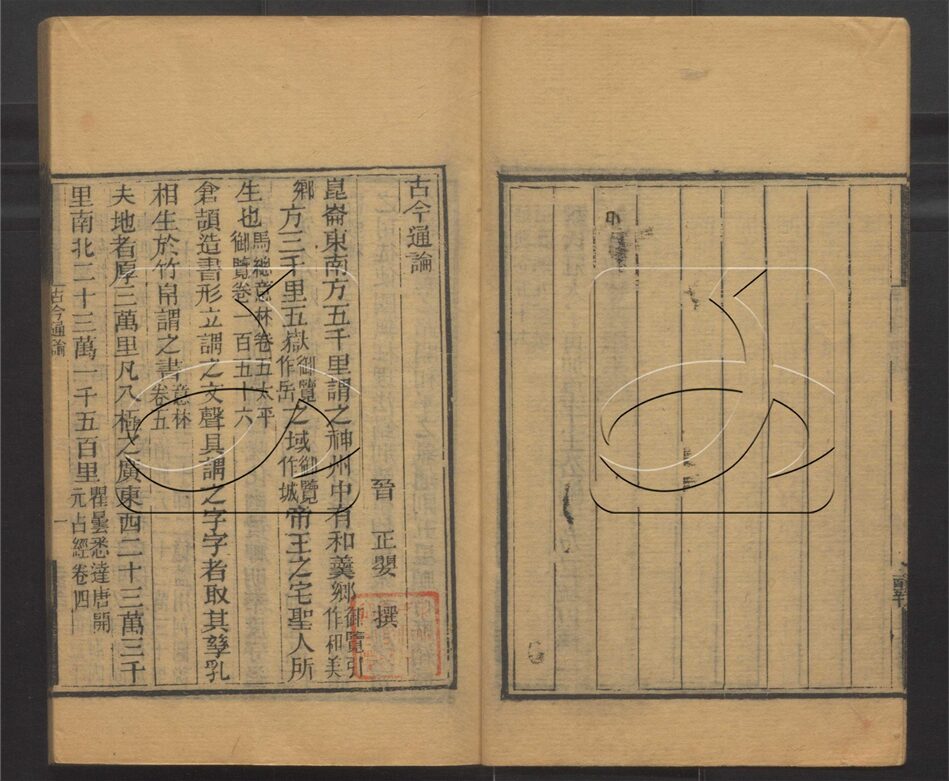 古今通論
晉 正嬰 撰
崑崙東南方五千里謂之神州中有和羹鄉御覽引作和美
鄉方三千里五嶽御覽作岳之域御覽作城帝王之宅聖人所
生也馬總意林卷五太平御覽卷一百五十六
倉頡造書形立謂之文聲具謂之字字者取其孳乳
相生於竹帛謂之書意林卷五
夫地者厚三萬里凡八極之廣東西二十三萬三千
里南北二十三萬一千五百里瞿曇悉達唐開元占經卷四
古今通論
一